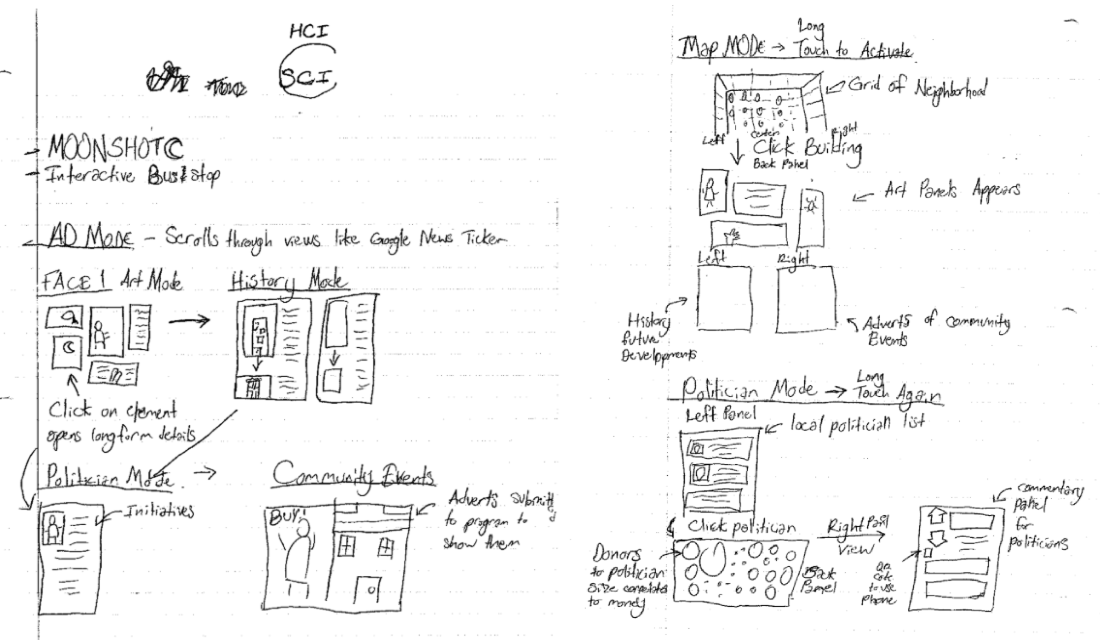 HCI
SCI
MOONSHOT
Interactive Bus stop
AD MODE - Scrolls through views like Google News Ticker
FACE 1 Art Mode
History Mode
Click on element
opens longform details
Politician Mode
Initiatives
Community Events
Buy!
Adverts submitted
to program to
show them
Map MODE → Long
Touch to Activate
Grid of Neighborhood
Left
Center
Right
Click Building
Back Panel
Art Panels Appears
Left
Right
History
future
Developments
Adverts of community
Events
Politician Mode → Long
Touch Again
Left Panel
local politician list
Click politician
Right Panel
View
Donors
to politician
size correlates
to money
Back
Panel
commentary
panel
for
politicians
QR
code
to use
phone